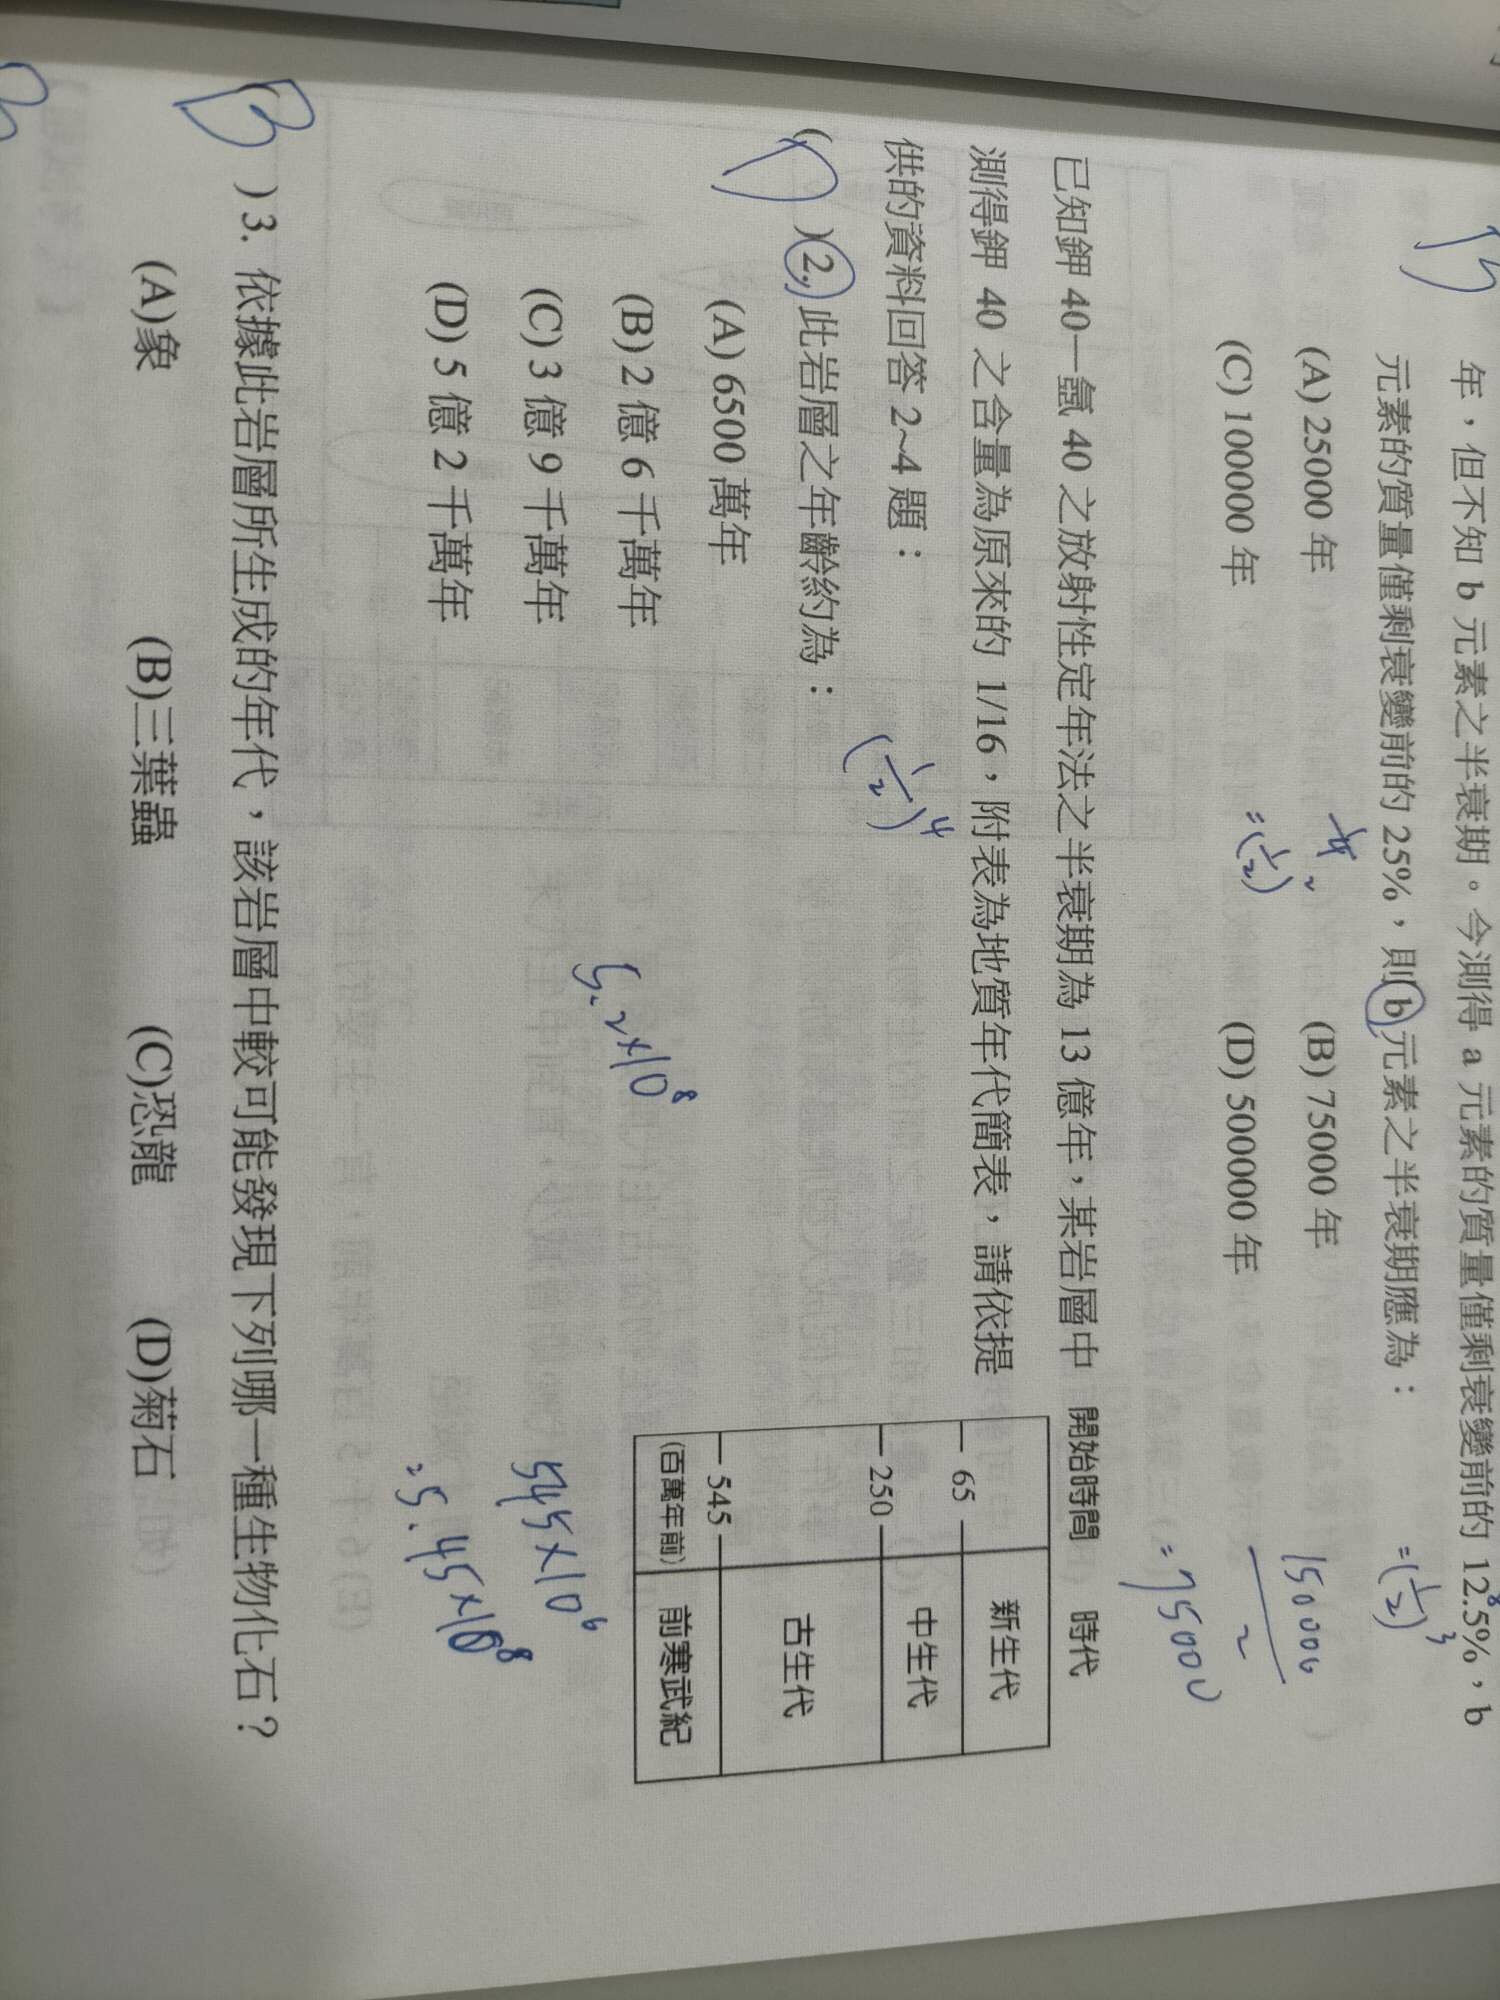 年，但不知 b 元素之半衰期。今測得 a 元素的質量僅剩衰變前的 12.5%，b
元素的質量僅剩衰變前的 25%，則 b 元素之半衰期應為：
(A) 25000 年 (B) 75000 年
(C) 100000 年 (D) 500000 年
=(1/2)
=(1/2)³
150000
2
=75000
已知鉀 40—氬 40 之放射性定年法之半衰期為 13 億年，某岩層中
測得鉀 40 之含量為原來的 1/16，附表為地質年代簡表，請依提
供的資料回答 2~4 題：
開始時間 時代
新生代
65
中生代
250
古生代
545
(百萬年前) 前寒武紀
( )2. 此岩層之年齡約為：
(1/2)⁴
(A) 6500 萬年
(B) 2 億 6 千萬年
(C) 3 億 9 千萬年
(D) 5 億 2 千萬年
5.2×10⁸
545×10⁶
=5.45×10⁸
(B) 3. 依據此岩層所生成的年代，該岩層中較可能發現下列哪一種生物化石？
(A)象 (B)三葉蟲 (C)恐龍 (D)菊石